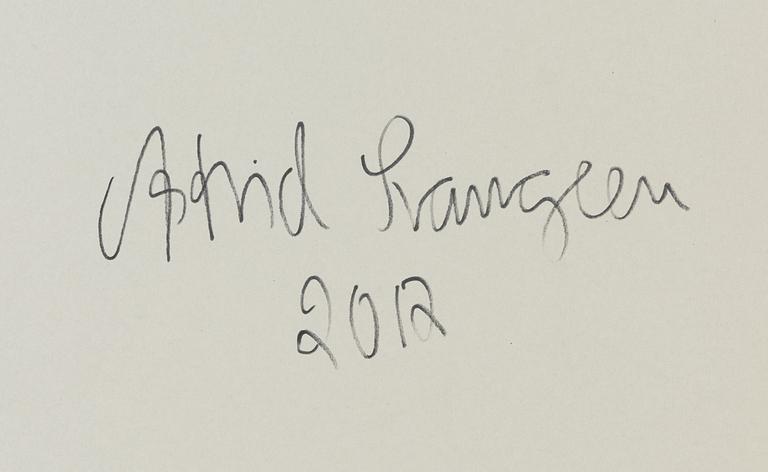 Astrid Svangren
2012